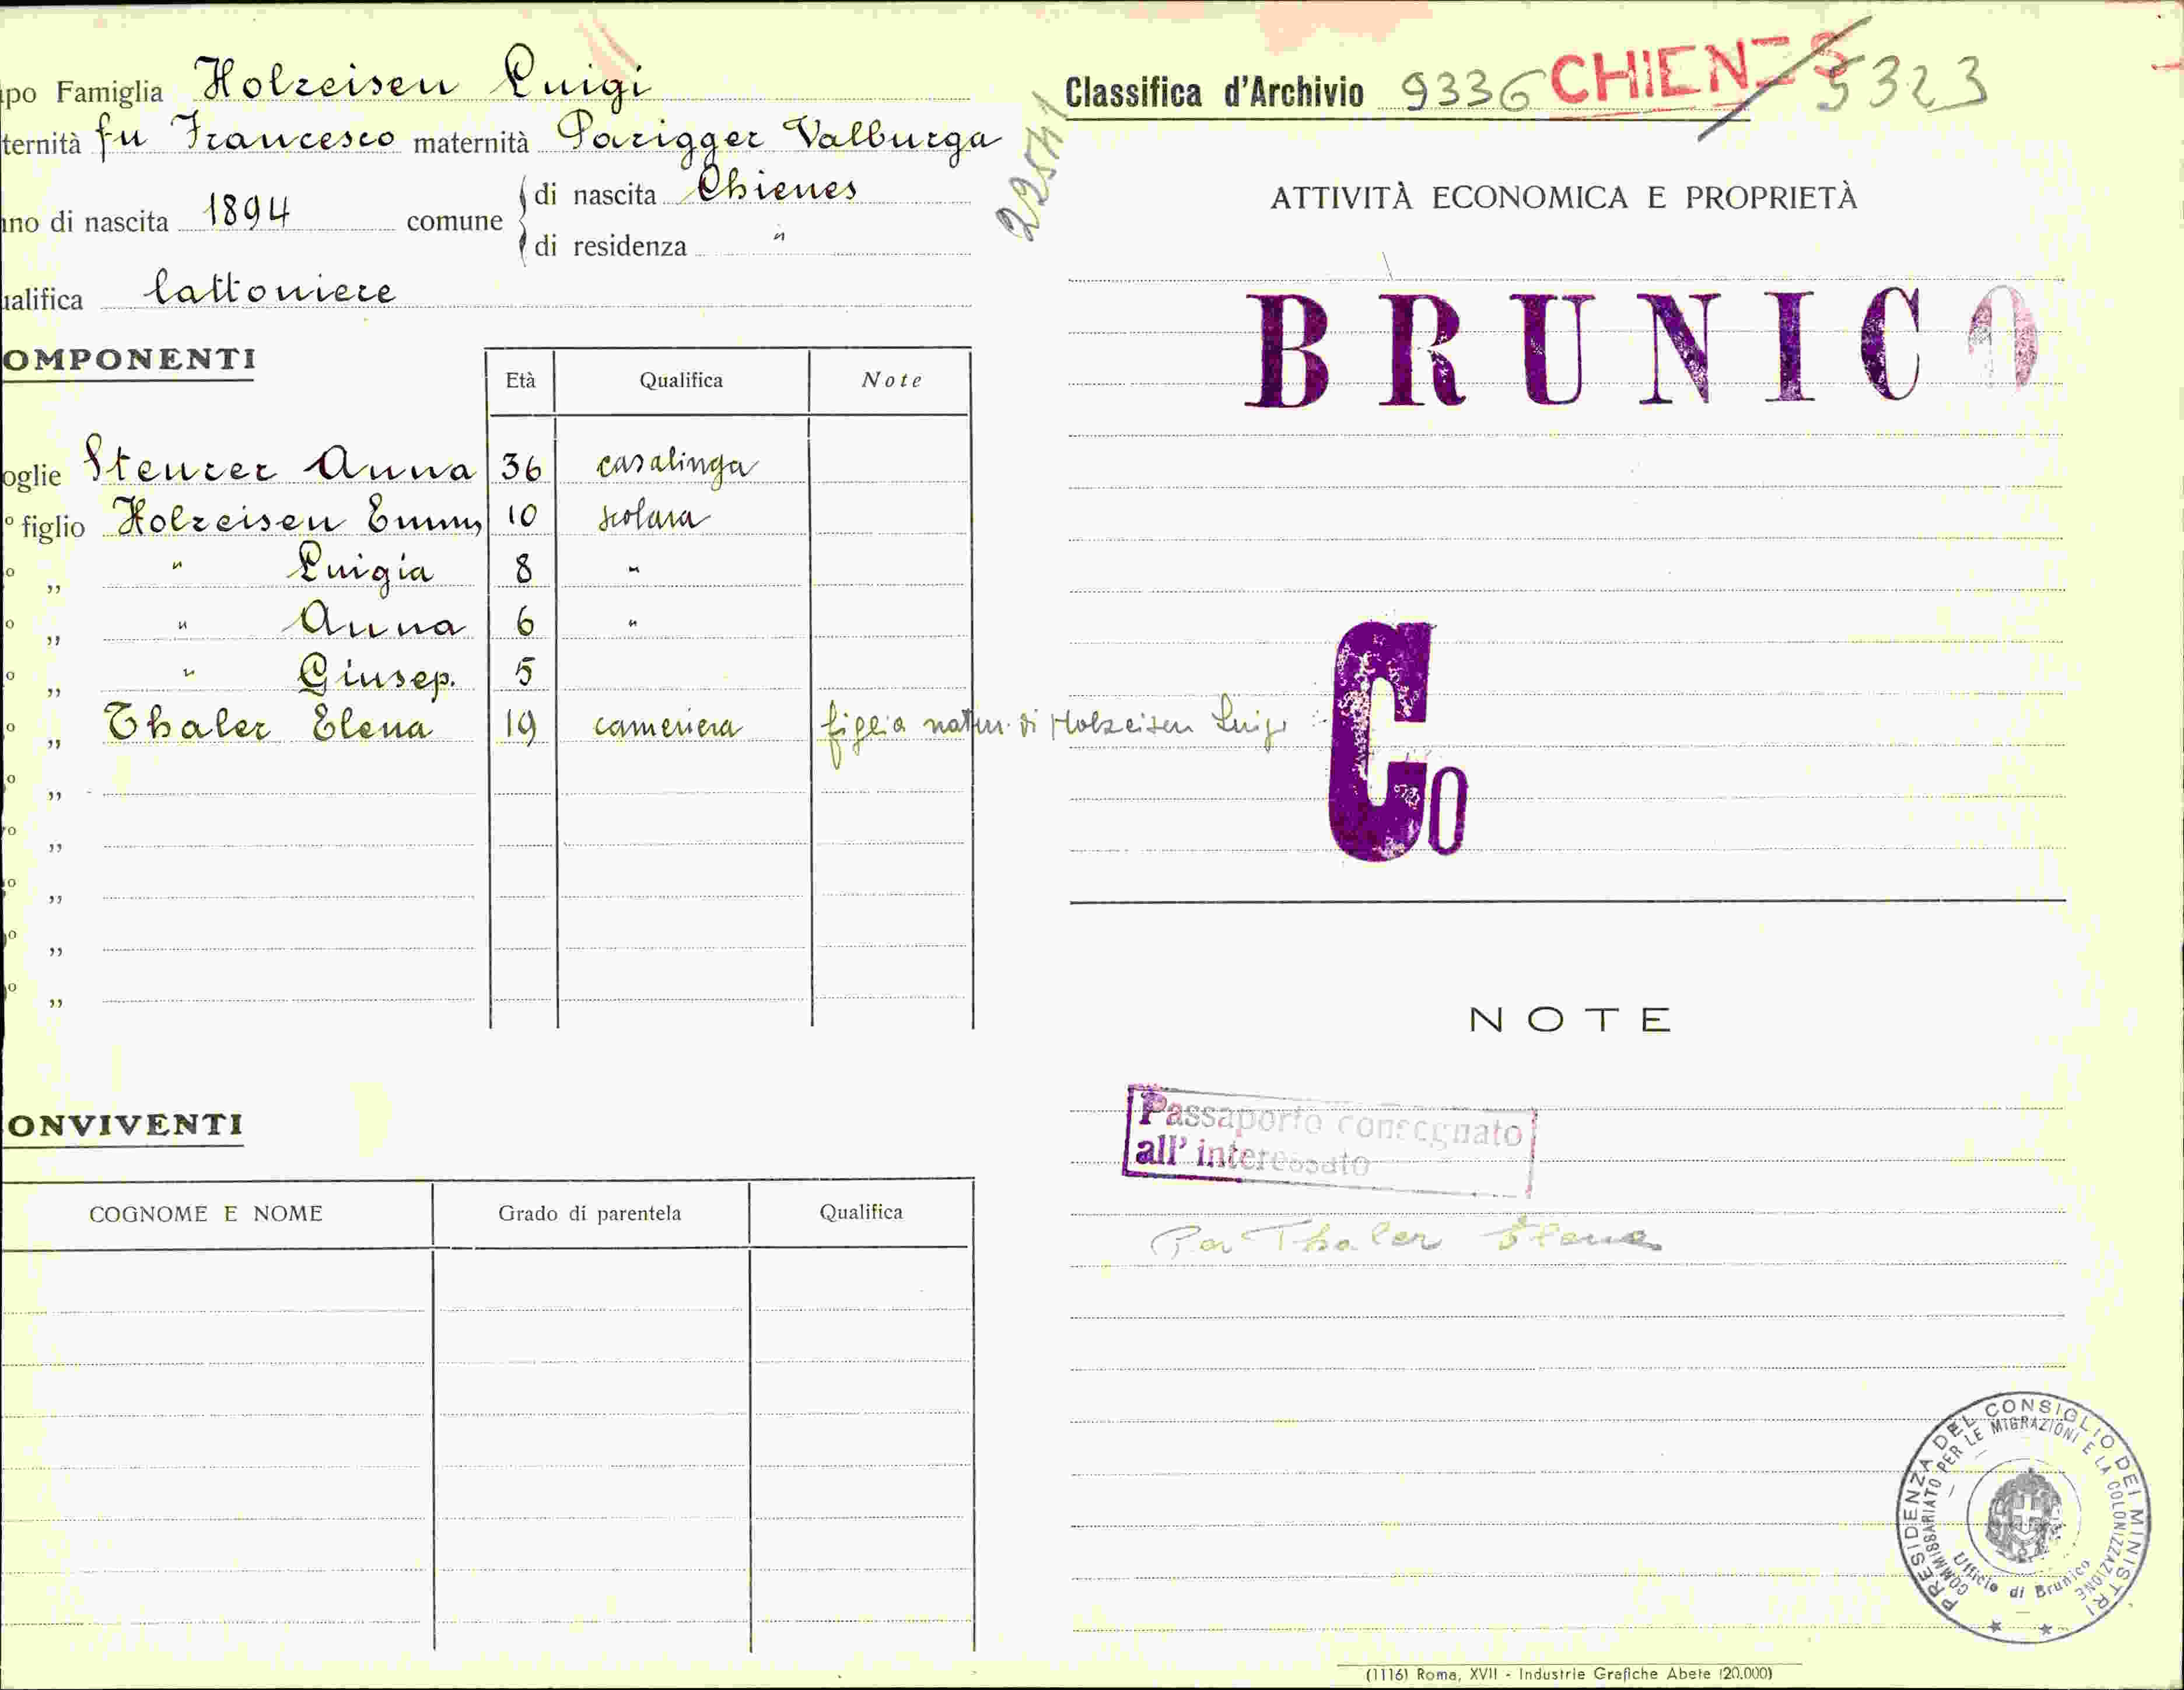 po Famiglia Holzeisen Luigi
ternità fu Francesco maternità Parigger Valburga
no di nascita 1894 comune di nascita Chienes
di residenza "
alifica lattoniere
OMPONENTI
Età Qualifica Note
oglie Steurer Anna 36 casalinga
º figlio Holzeisen Emmy 10 scolara
º „ " Luigia 8 "
º „ " Anna 6 "
º „ " Giusep. 5
º „ Thaler Elena 19 cameriera figlia natur. di Holzeisen Luigi
º „
º „
º „
º „
º „
ONVIVENTI
COGNOME E NOME Grado di parentela Qualifica
22541
Classifica d'Archivio 9336 CHIENES 5323
ATTIVITÀ ECONOMICA E PROPRIETÀ
BRUNICO
Co
NOTE
Passaporto consegnato
all' interessato
Per Thaler Elena
PRESIDENZA DEL CONSIGLIO DEI MINISTRI
COMMISSARIATO PER LE MIGRAZIONI E LA COLONIZZAZIONE
Ufficio di Brunico
(1116) Roma, XVII - Industrie Grafiche Abete (20.000)